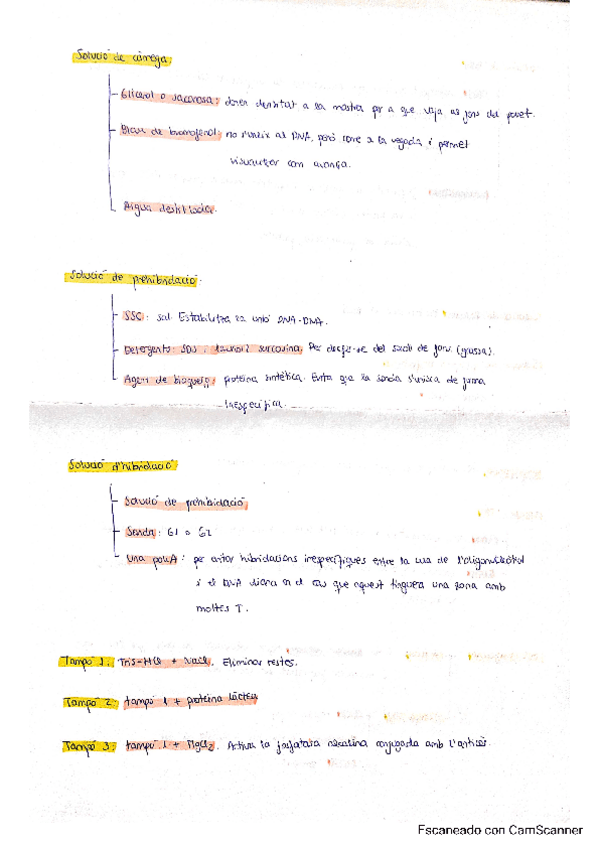 Solució de càrrega:
Glicerol o sacarosa: donen densitat a la mostra per a que vaja al fons del pouet.
Blau de bromofenol: no s'uneix al DNA, però corre a la vegada i permet
visualitzar com avança.
Aigua destil·lada.
Solució de prehibridació:
SSC: sal. Estabilitza la unió DNA-DNA.
Detergents: SDS i lauroil sarcosina. Per desfer-se del soroll de fons (grassa).
Agent de bloqueig: proteïna sintètica. Evita que la sonda s'unisca de forma
inespecífica.
Solució d'hibridació
Solució de prehibridació
Sonda: G1 o G2
Una poliA: per evitar hibridacions inespecífiques entre la cua de l'oligonucleòtid
i el DNA diana en el cas que aquest tinguera una zona amb
moltes T.
Tampó 1: Tris-HCl + NaCl. Eliminar restes.
Tampó 2: tampó 1 + proteïna làctea
Tampó 3: tampó 1 + MgCl2. Activa la fosfatasa alcalina conjugada amb l'anticòs.
Escaneado con CamScanner